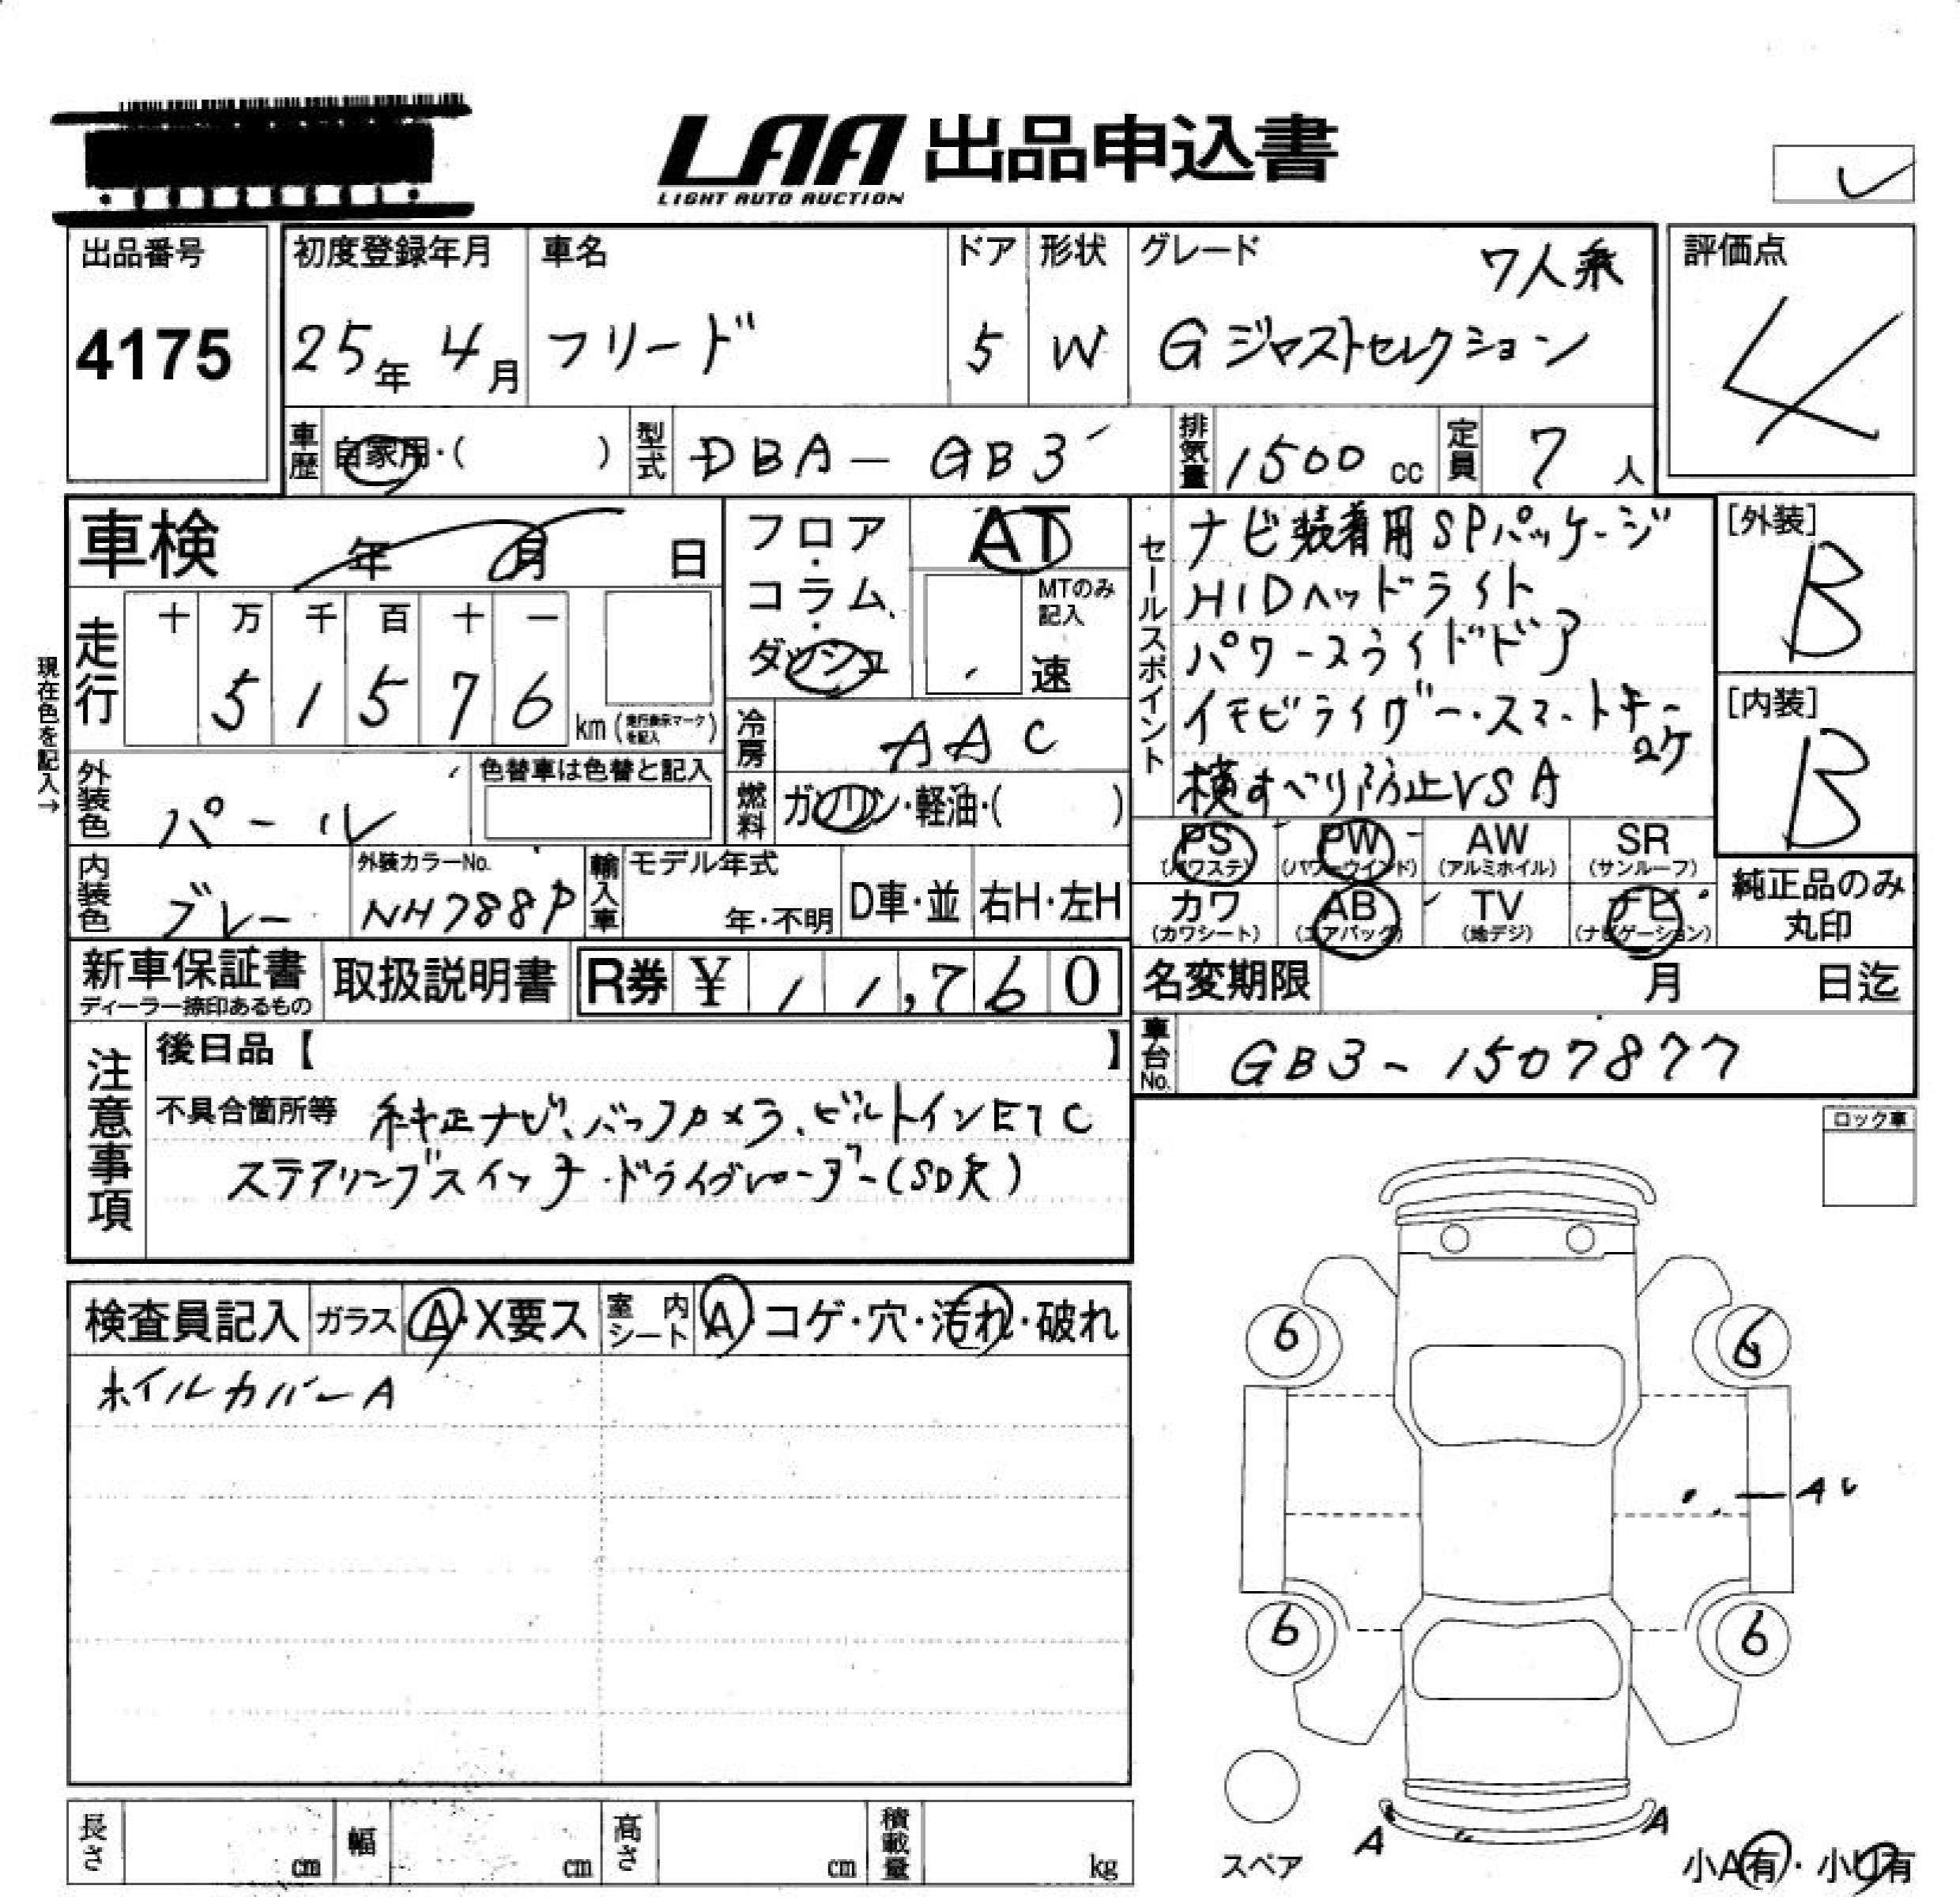 LAA 出品申込書
LIGHT AUTO AUCTION
出品番号
4175
初度登録年月
25年 4月
車名
フリード
ドア
5
形状
W
グレード
7人乗
G ジャストセレクション
評価点
4
車歴
自家用・( )
型式
DBA-GB3
排気量
1500 cc
定員
7 人
車検 年 月 日
走行
十 万 千 百 十 一
5 1 5 7 6 km (走行表示マークを記入)
現在色を記入→
フロア・コラム・ダッシュ
AT
MTのみ記入
速
冷房
AAC
燃料
ガソリン・軽油・( )
セールスポイント
ナビ装着用SPパッケージ
HIDヘッドライト
パワースライドドア
イモビライザー・スマートキー
2ケ
横すべり防止VSA
[外装]
B
[内装]
B
外装色
パール
色替車は色替と記入
内装色
グレー
外装カラーNo.
NH788P
輸入車
モデル年式
年・不明
D車・並
右H・左H
PS
(パワステ)
PW
(パワーウインド)
AW
(アルミホイル)
SR
(サンルーフ)
カワ
(カワシート)
AB
(エアバック)
TV
(地デジ)
ナビ
(ナビゲーション)
純正品のみ
丸印
新車保証書
ディーラー捺印あるもの
取扱説明書
R券 ¥ 11,760
名変期限 月 日迄
車台No.
GB3-1507877
注意事項
後日品【 】
不具合箇所等 純正ナビ、バックカメラ、ビルトインETC
ステアリングスイッチ・ドライブレコーダー(SD欠)
ロック車
検査員記入
ガラス
A・X要ス
室内シート
A・コゲ・穴・汚れ・破れ
ホイルカバーA
6
6
6
6
A
A
スペア
小A有・小U有
長さ cm
幅 cm
高さ cm
積載量 kg